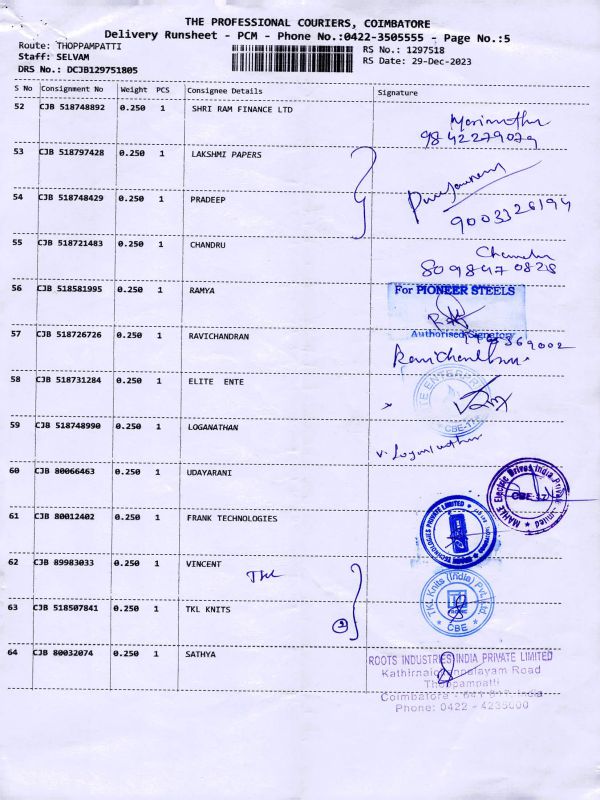 THE PROFESSIONAL COURIERS, COIMBATORE
Delivery Runsheet - PCM - Phone No.:0422-3505555 - Page No.:5
Route: THOPPAMPATTI
RS No.: 1297518
Staff: SELVAM
RS Date: 29-Dec-2023
DRS No.: DCJB129751805
S No Consignment No Weight PCS Consignee Details Signature
52 CJB 518748892 0.250 1 SHRI RAM FINANCE LTD
9842279079
53 CJB 518797428 0.250 1 LAKSHMI PAPERS
54 CJB 518748429 0.250 1 PRADEEP
9003326194
55 CJB 518721483 0.250 1 CHANDRU
Chandru
8098470828
56 CJB 518581995 0.250 1 RAMYA
For PIONEER STEELS
Authorised Signatory
57 CJB 518726726 0.250 1 RAVICHANDRAN
Ravichandran
58 CJB 518731284 0.250 1 ELITE ENTE
59 CJB 518748990 0.250 1 LOGANATHAN
V. Loganathan
60 CJB 80066463 0.250 1 UDAYARANI
MAHLE Electric Drives India Private Limited
CBE-17
61 CJB 80012402 0.250 1 FRANK TECHNOLOGIES
TECHNOLOGIES PRIVATE LIMITED
62 CJB 89983033 0.250 1 VINCENT
TKL
TKL Knits (India) Pvt. Ltd.
CBE
63 CJB 518507841 0.250 1 TKL KNITS
2
64 CJB 80032074 0.250 1 SATHYA
ROOTS INDUSTRIES INDIA PRIVATE LIMITED
Thoppampatti
Coimbatore - 641 017 India
Phone: 0422 - 4235000